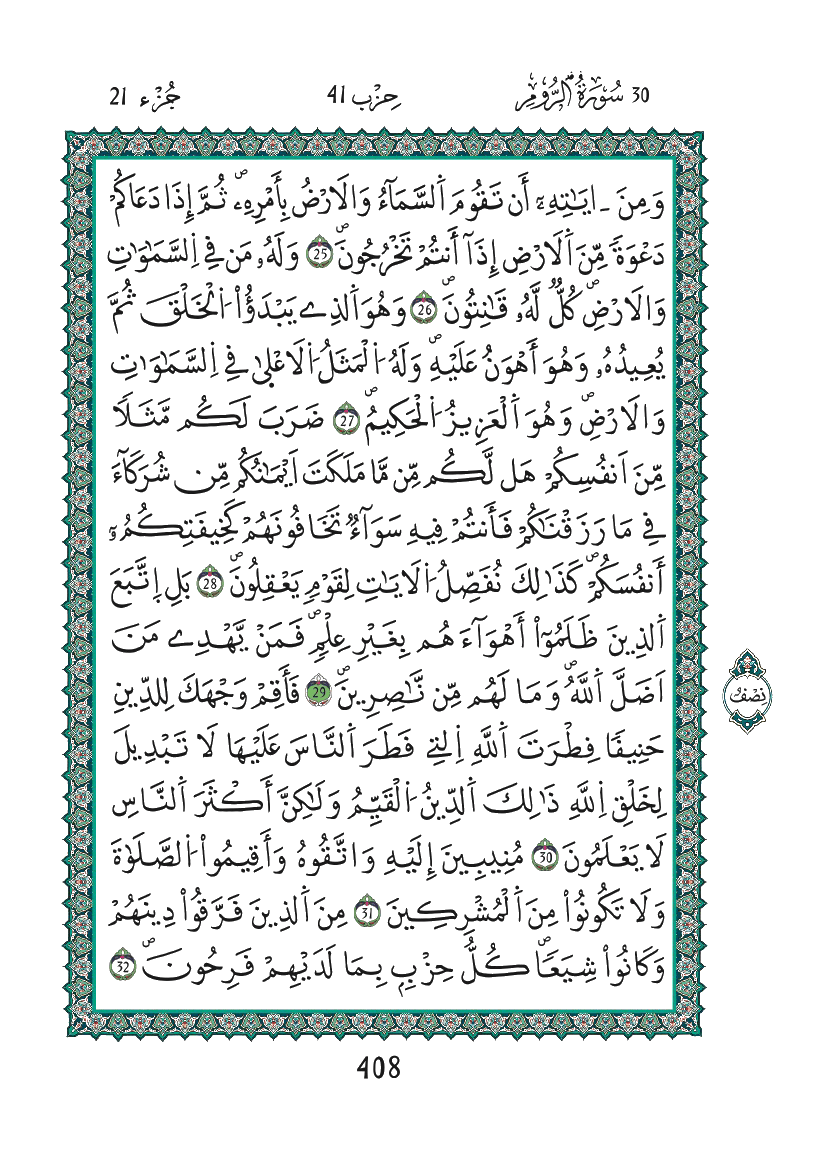 30 سُورَةُ الرُّومِ حِزْب 41 جُزْء 21
وَمِنَ ـ ايَٰتِهِۦٓ أَن تَقُومَ اَ۬لسَّمَآءُ وَالَارْضُ بِأَمْرِهِۦۖ ثُمَّ إِذَا دَعَاكُمْ
دَعْوَةٗ مِّنَ اَ۬لَارْضِ إِذَآ أَنتُمْ تَخْرُجُونَۖ 25 وَلَهُۥ مَن فِے اِ۬لسَّمَٰوَٰتِ
وَالَارْضِۖ كُلّٞ لَّهُۥ قَٰنِتُونَۖ 26 وَهُوَ اَ۬لذِے يَبْدَؤُاْ اُ۬لْخَلْقَ ثُمَّ
يُعِيدُهُۥ وَهُوَ أَهْوَنُ عَلَيْهِۖ وَلَهُ اُ۬لْمَثَلُ اُ۬لَاعْلَىٰ فِے اِ۬لسَّمَٰوَٰتِ
وَالَارْضِۖ وَهُوَ اَ۬لْعَزِيزُ اُ۬لْحَكِيمُۖ 27 ضَرَبَ لَكُم مَّثَلاٗ
مِّنَ اَنفُسِكُمْ هَل لَّكُم مِّن مَّا مَلَكَتَ اَيْمَٰنُكُم مِّن شُرَكَآءَ
فِے مَا رَزَقْنَٰكُمْ فَأَنتُمْ فِيهِ سَوَآءٞ تَخَافُونَهُمْ كَخِيفَتِكُمُۥٓ
أَنفُسَكُمْۖ كَذَٰلِكَ نُفَصِّلُ اُ۬لَايَٰتِ لِقَوْمٖ يَعْقِلُونَۖ 28 بَلِ اِ۪تَّبَعَ
اَ۬لذِينَ ظَلَمُوٓاْ أَهْوَآءَهُم بِغَيْرِ عِلْمٖۖ فَمَنْ يَّهْدِے مَنَ
اَضَلَّ اَ۬للَّهُۖ وَمَا لَهُم مِّن نَّٰصِرِينَۖ 29 فَأَقِمْ وَجْهَكَ لِلدِّينِ
نصْفُ
حَنِيفاٗ فِطْرَتَ اَ۬للَّهِ اِ۬لتِے فَطَرَ اَ۬لنَّاسَ عَلَيْهَا لَا تَبْدِيلَ
لِخَلْقِ اِ۬للَّهِ ذَٰلِكَ اَ۬لدِّينُ اُ۬لْقَيِّمُ وَلَٰكِنَّ أَكْثَرَ اَ۬لنَّاسِ
لَا يَعْلَمُونَ 30 مُنِيبِينَ إِلَيْهِ وَاتَّقُوهُ وَأَقِيمُواْ اُ۬لصَّلَوٰةَ
وَلَا تَكُونُواْ مِنَ اَ۬لْمُشْرِكِينَ 31 مِنَ اَ۬لذِينَ فَرَّقُواْ دِينَهُمْ
وَكَانُواْ شِيَعاٗۖ كُلُّ حِزْبِۢ بِمَا لَدَيْهِمْ فَرِحُونَۖ 32
408